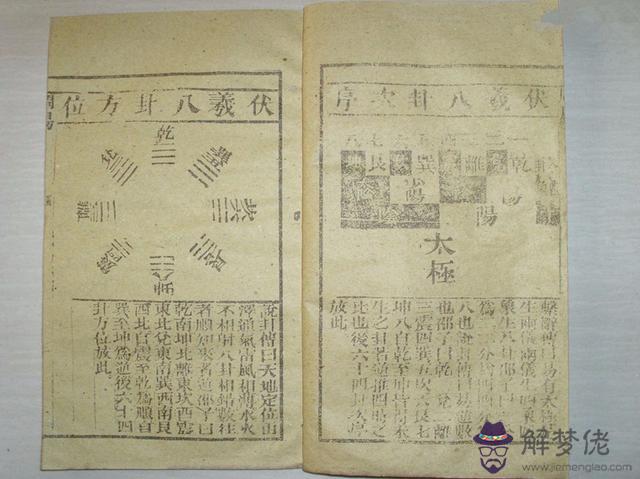 伏羲八卦次序
乾
離
巽
艮
陽
陽
太極
繫辭傳曰易有太極
生兩儀兩儀生四象
生八卦邵子曰
為四四分為
八也說卦傳曰易逆數
也邵子曰乾一兌二離
三震四巽五坎六艮七
坤八自乾至坤皆得未
生之卦若逆推四時之
比也後六十四卦次序
放此
伏羲八卦方位
乾
說卦傳曰天地定位山
澤通氣雷風相薄水火
不相射八卦相錯數往
者順知來者逆邵子曰
乾南坤北離東坎西震
東北兌東南巽西南艮
西北自震至乾為順自
巽至坤為逆後六十四
卦方位放此
周易
解梦佬
www.jiemenglao.com